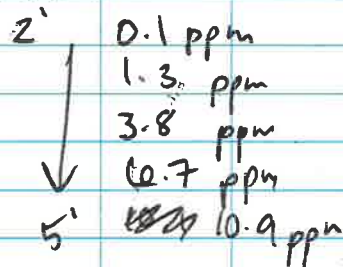 2' 0.1 ppm
1.3 ppm
3.8 ppm
6.7 ppm
5' 10.9 ppm